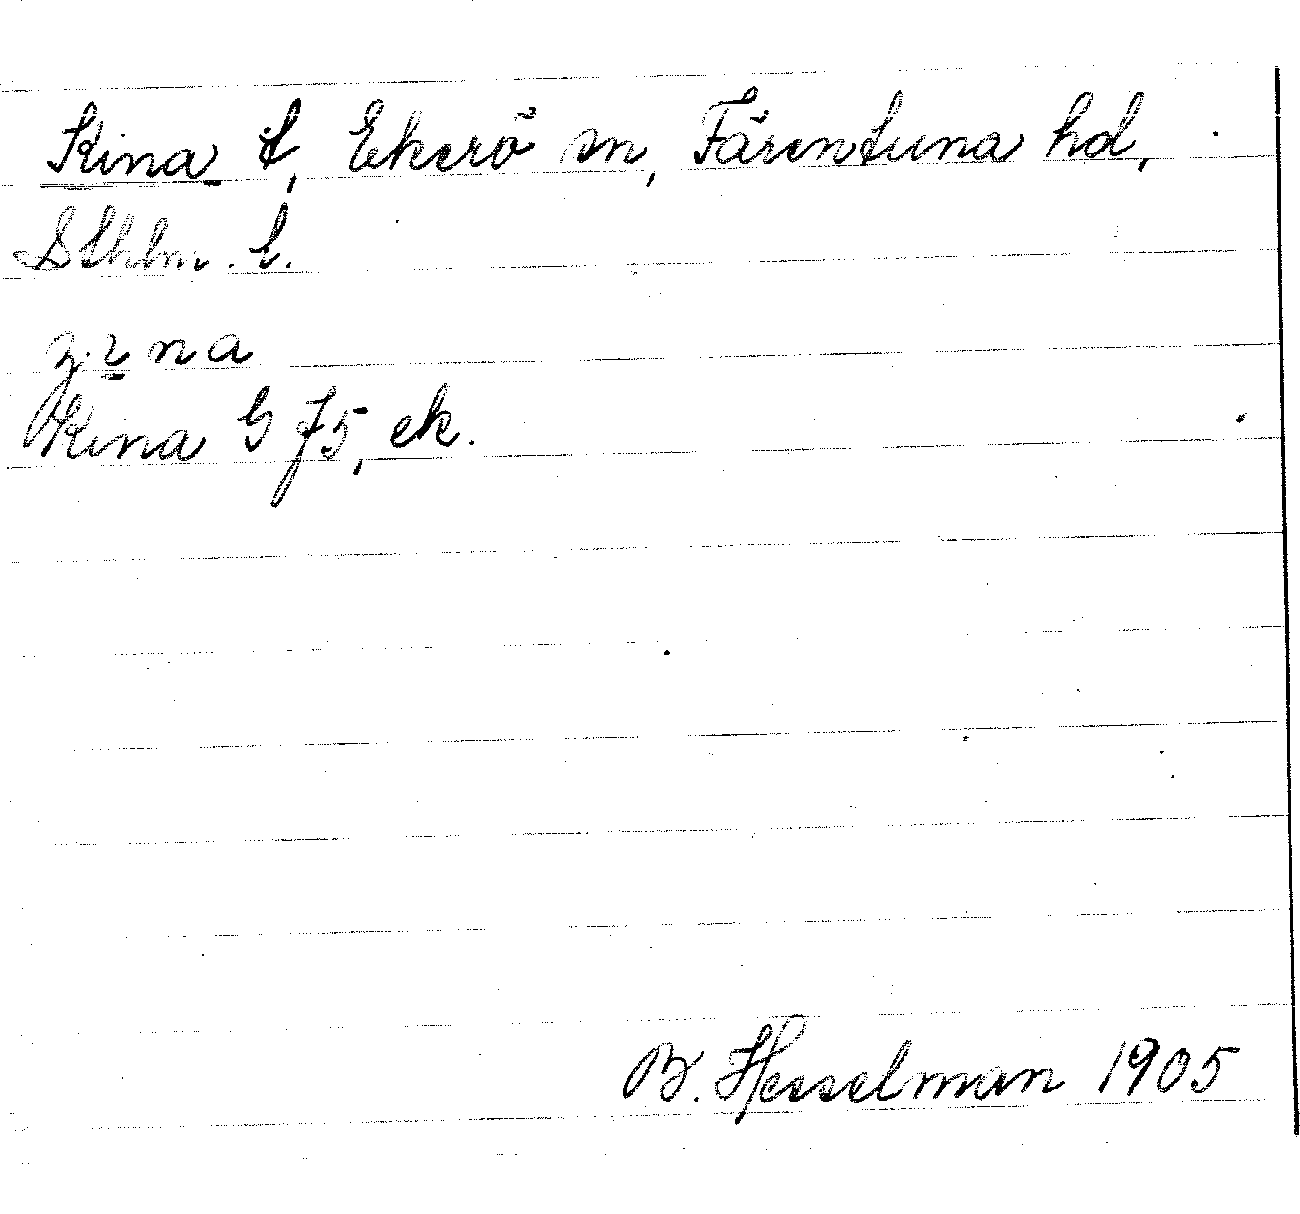 Kina t, Ekerö sn, Färentuna hd,
Sthlm. l.
Kina G J5, ek.
B. Hesselman 1905